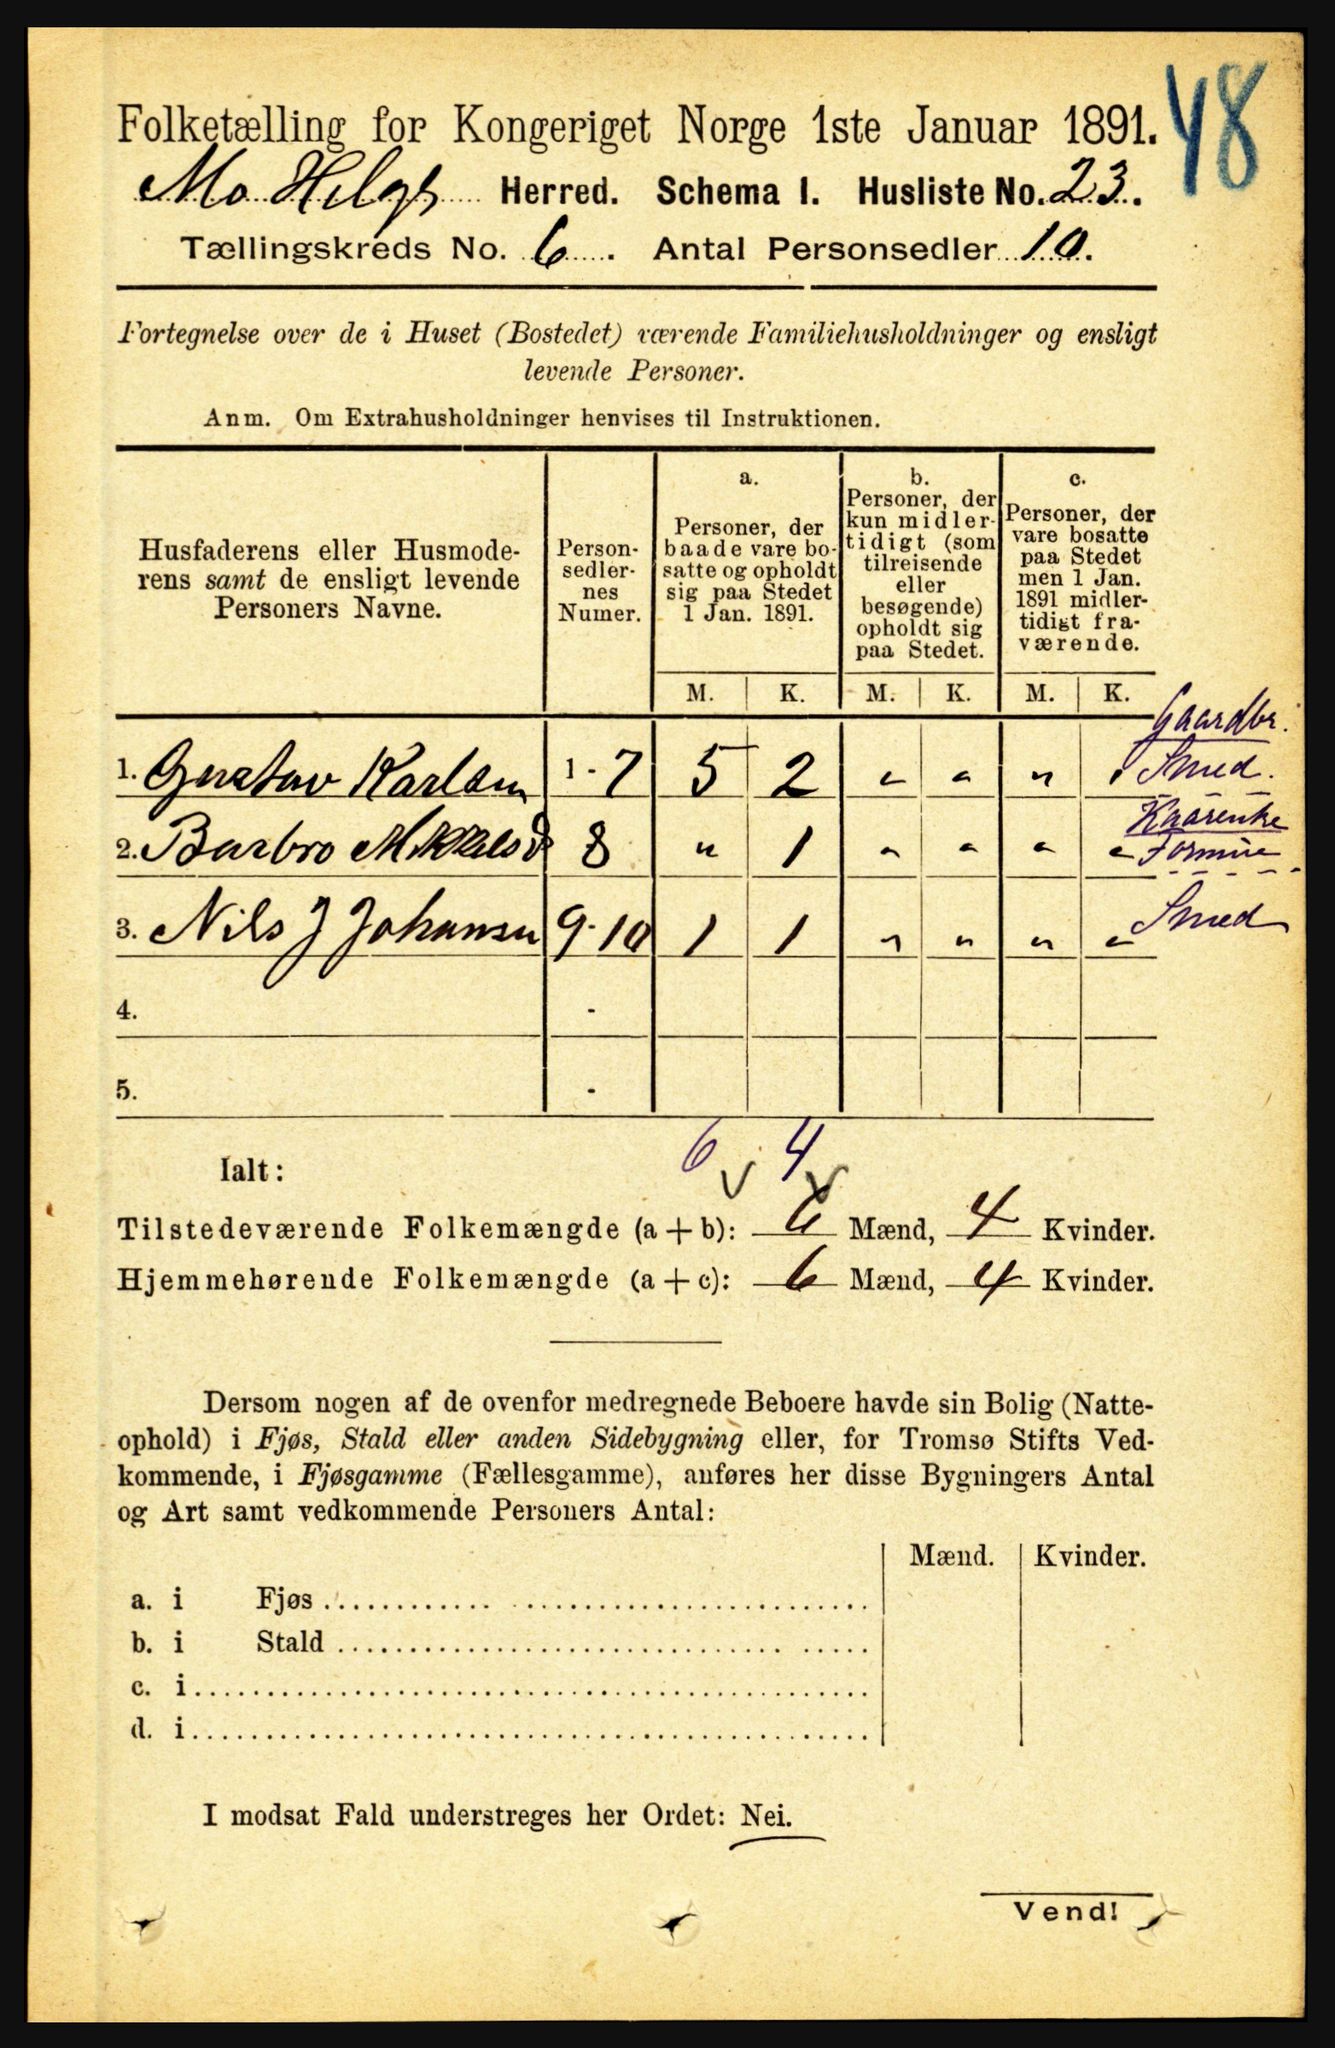 48
Folketælling for Kongeriget Norge 1ste Januar 1891.
Mo Helgl Herred. Schema I. Husliste No. 23.
Tællingskreds No. 6. Antal Personsedler 10.
Fortegnelse over de i Huset (Bostedet) værende Familiehusholdninger og ensligt
levende Personer.
Anm. Om Extrahusholdninger henvises til Instruktionen.
Husfaderens eller Husmode-
rens samt de ensligt levende
Personers Navne.
Person-
sedler-
nes
Numer.
a.
Personer, der
baade vare bo-
satte og opholdt
sig paa Stedet
1 Jan. 1891.
b.
Personer, der
kun midler-
tidigt (som
tilreisende
eller
besøgende)
opholdt sig
paa Stedet.
c.
Personer, der
vare bosatte
paa Stedet
men 1 Jan.
1891 midler-
tidigt fra-
værende.
M. K. M. K. M. K.
Gaardbr.
1. Gustav Karlsen 1-7 5 2 " " " " Smed.
2. Barbro Mikkelsd 8 " 1 " " " "
3. Nils J Johansen 9-10 1 1 " " " " Smed
4. -
5. -
6 4
Ialt:
Tilstedeværende Folkemængde (a+b): 6 Mænd, 4 Kvinder.
Hjemmehørende Folkemængde (a+c): 6 Mænd, 4 Kvinder.
Dersom nogen af de ovenfor medregnede Beboere havde sin Bolig (Natte-
ophold) i Fjøs, Stald eller anden Sidebygning eller, for Tromsø Stifts Ved-
kommende, i Fjøsgamme (Fællesgamme), anføres her disse Bygningers Antal
og Art samt vedkommende Personers Antal:
Mænd. Kvinder.
a. i Fjøs
b. i Stald
c. i
d. i
I modsat Fald understreges her Ordet: Nei.
Vend!